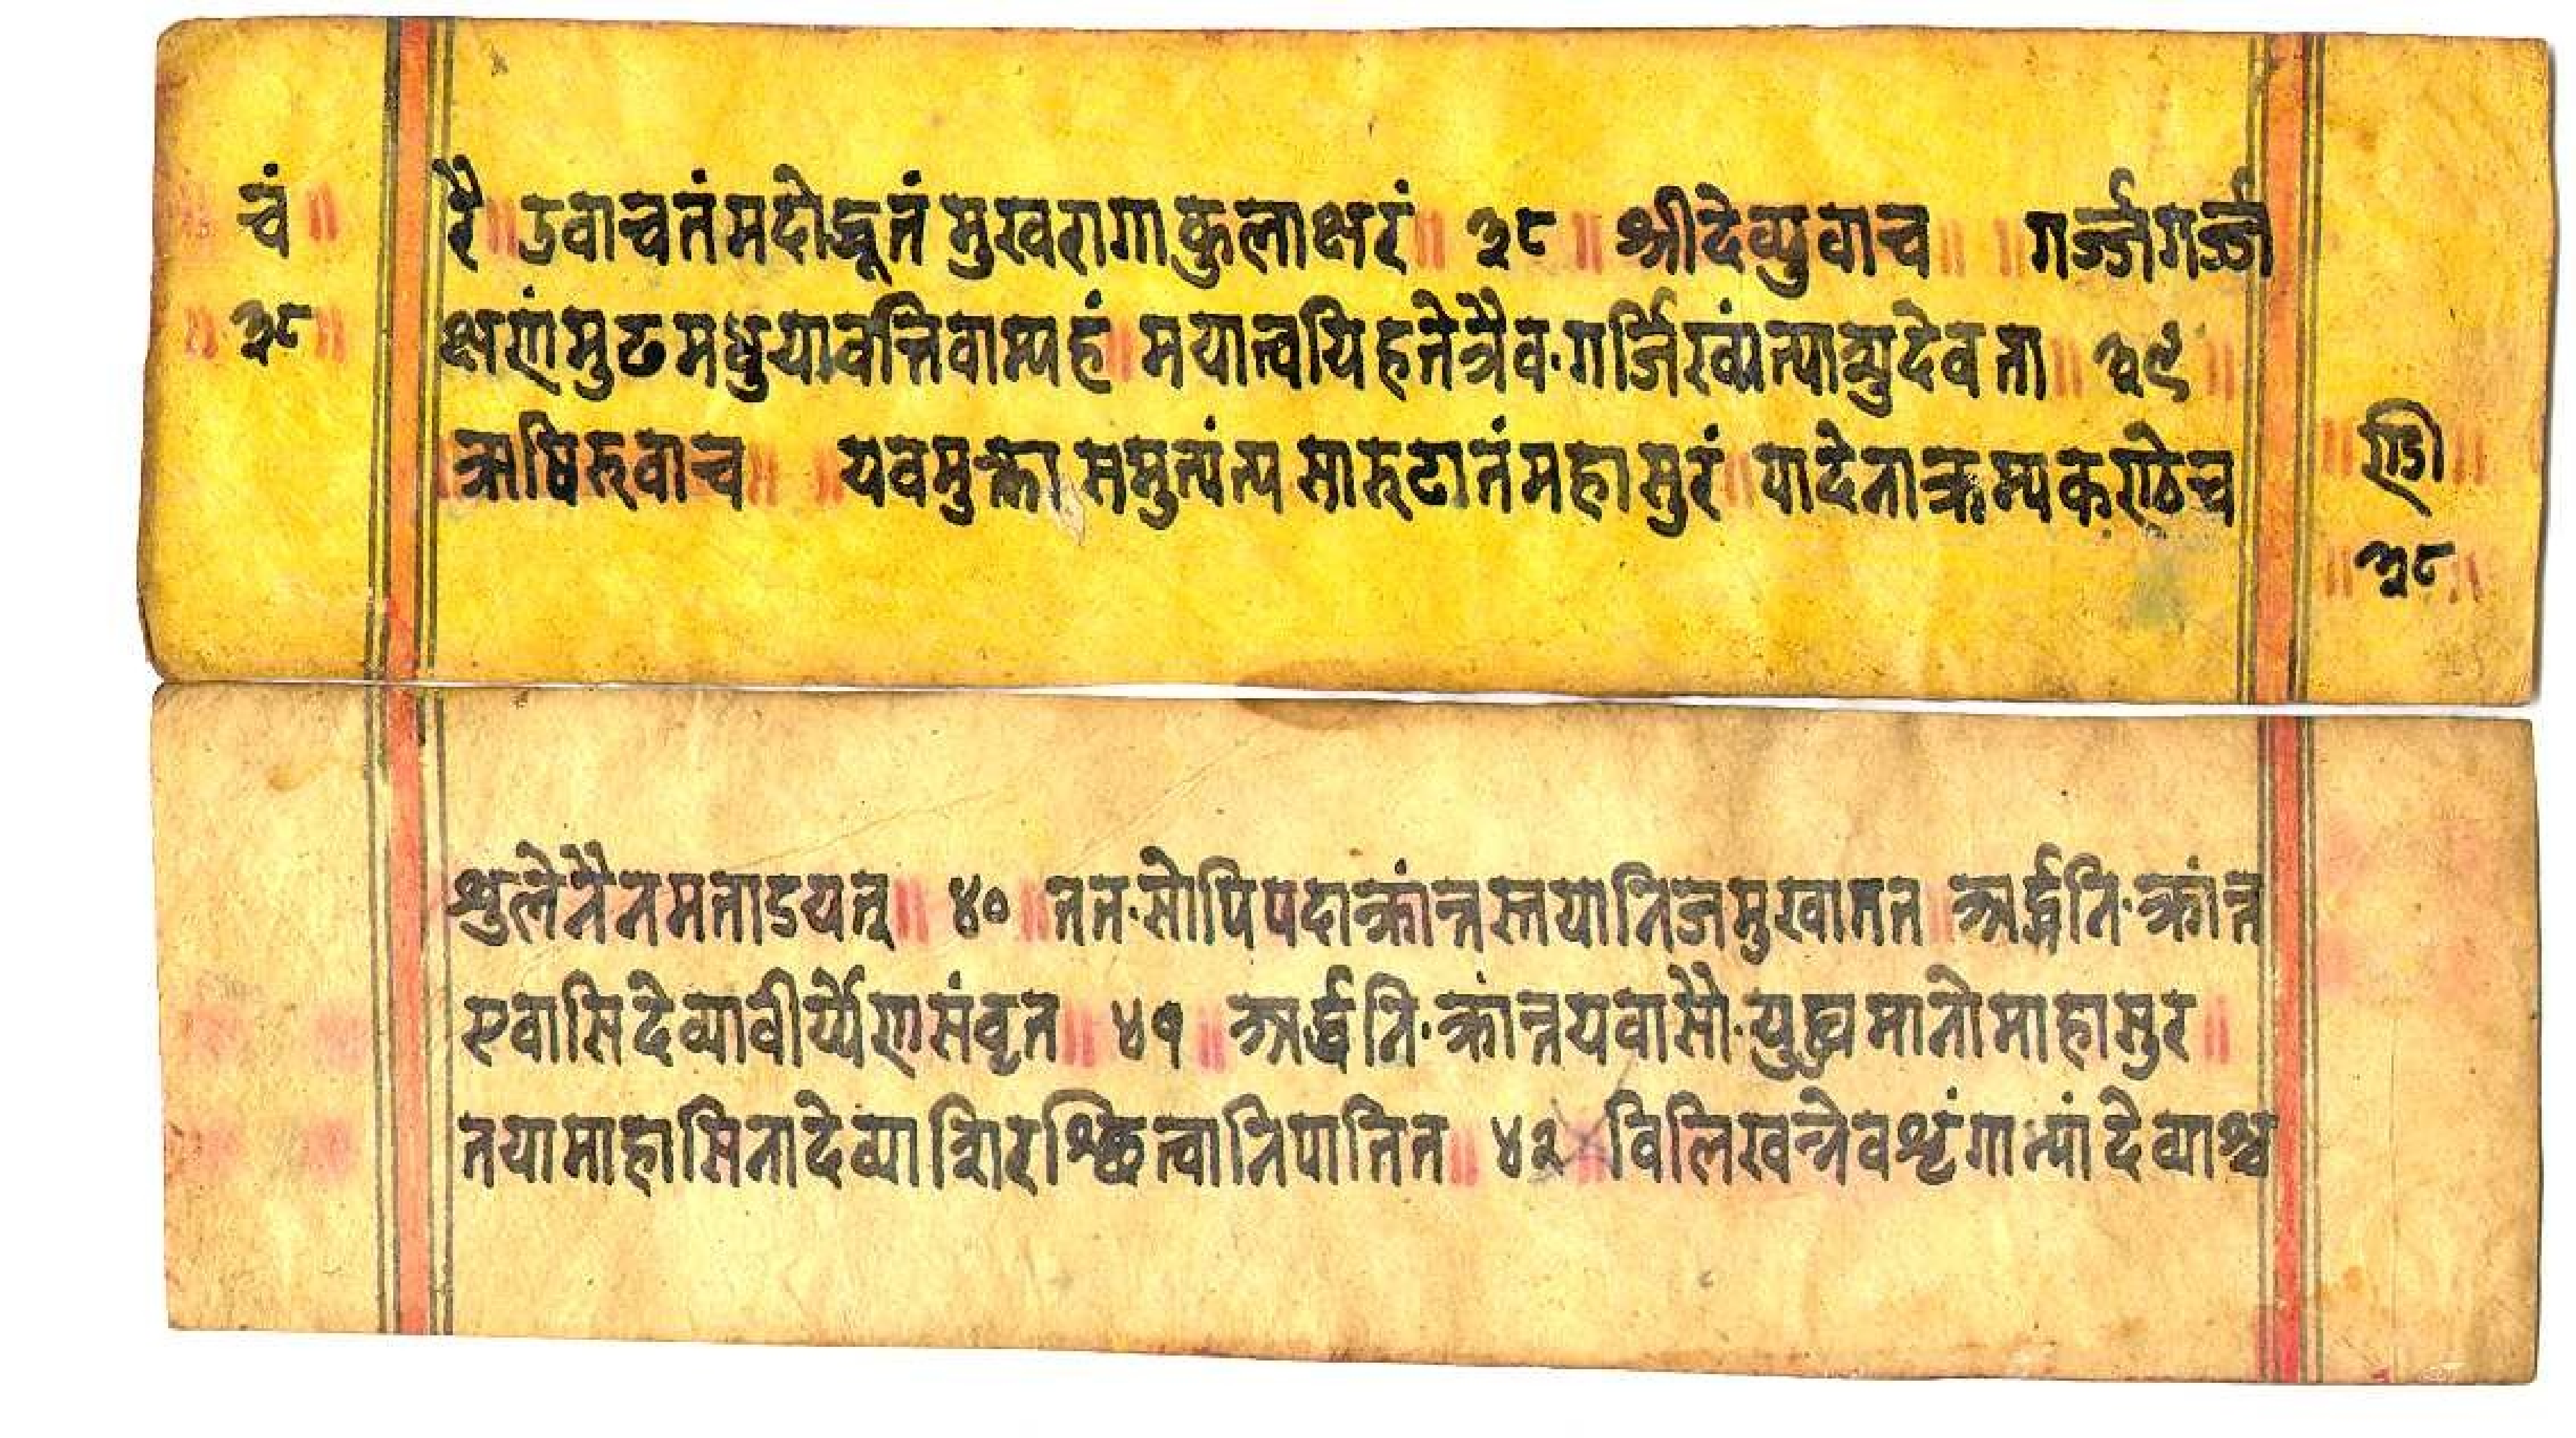 चं ॥
॥ ३८ ॥
रै ॥ उवाच्चतं मदोद्भूतं मुखरागाकुलाक्षरं ॥ ३८ ॥ श्रीदेव्युवाच ॥ ॥ गर्ज्जगर्ज्ज
क्षणंमुढमधुयावत्तिवाम्यहं ॥ मयात्वयिहतेत्रैव·गर्जिस्वंत्यासुदेवता ॥ ३९ ॥
ऋषिरुवाच ॥ ॥ यवमुक्तासमुत्पंत्यसारुढातंमहासुरं ॥ यादेनाक्रम्यकण्ठेच
॥ ण्डि ॥
॥ ३८ ॥
शुलेनैनमताडयत् ॥ ४० ॥ तत·सोपिपदाक्रांन्तस्तयानिजमुखातत ॥ अर्द्धनि·क्रांन्त
एवासिदेव्यावीर्य्येणसंवृत ॥ ४१ ॥ अर्द्धनि·क्रांन्तयवासौ·युद्ध्यमानोमाहासुर ॥
तयामाहासिनादेव्याशिरश्छित्वानिपातित ॥ ४२ ॥ विलिखन्त्रेवशृंगाभ्यांदेव्याश्च